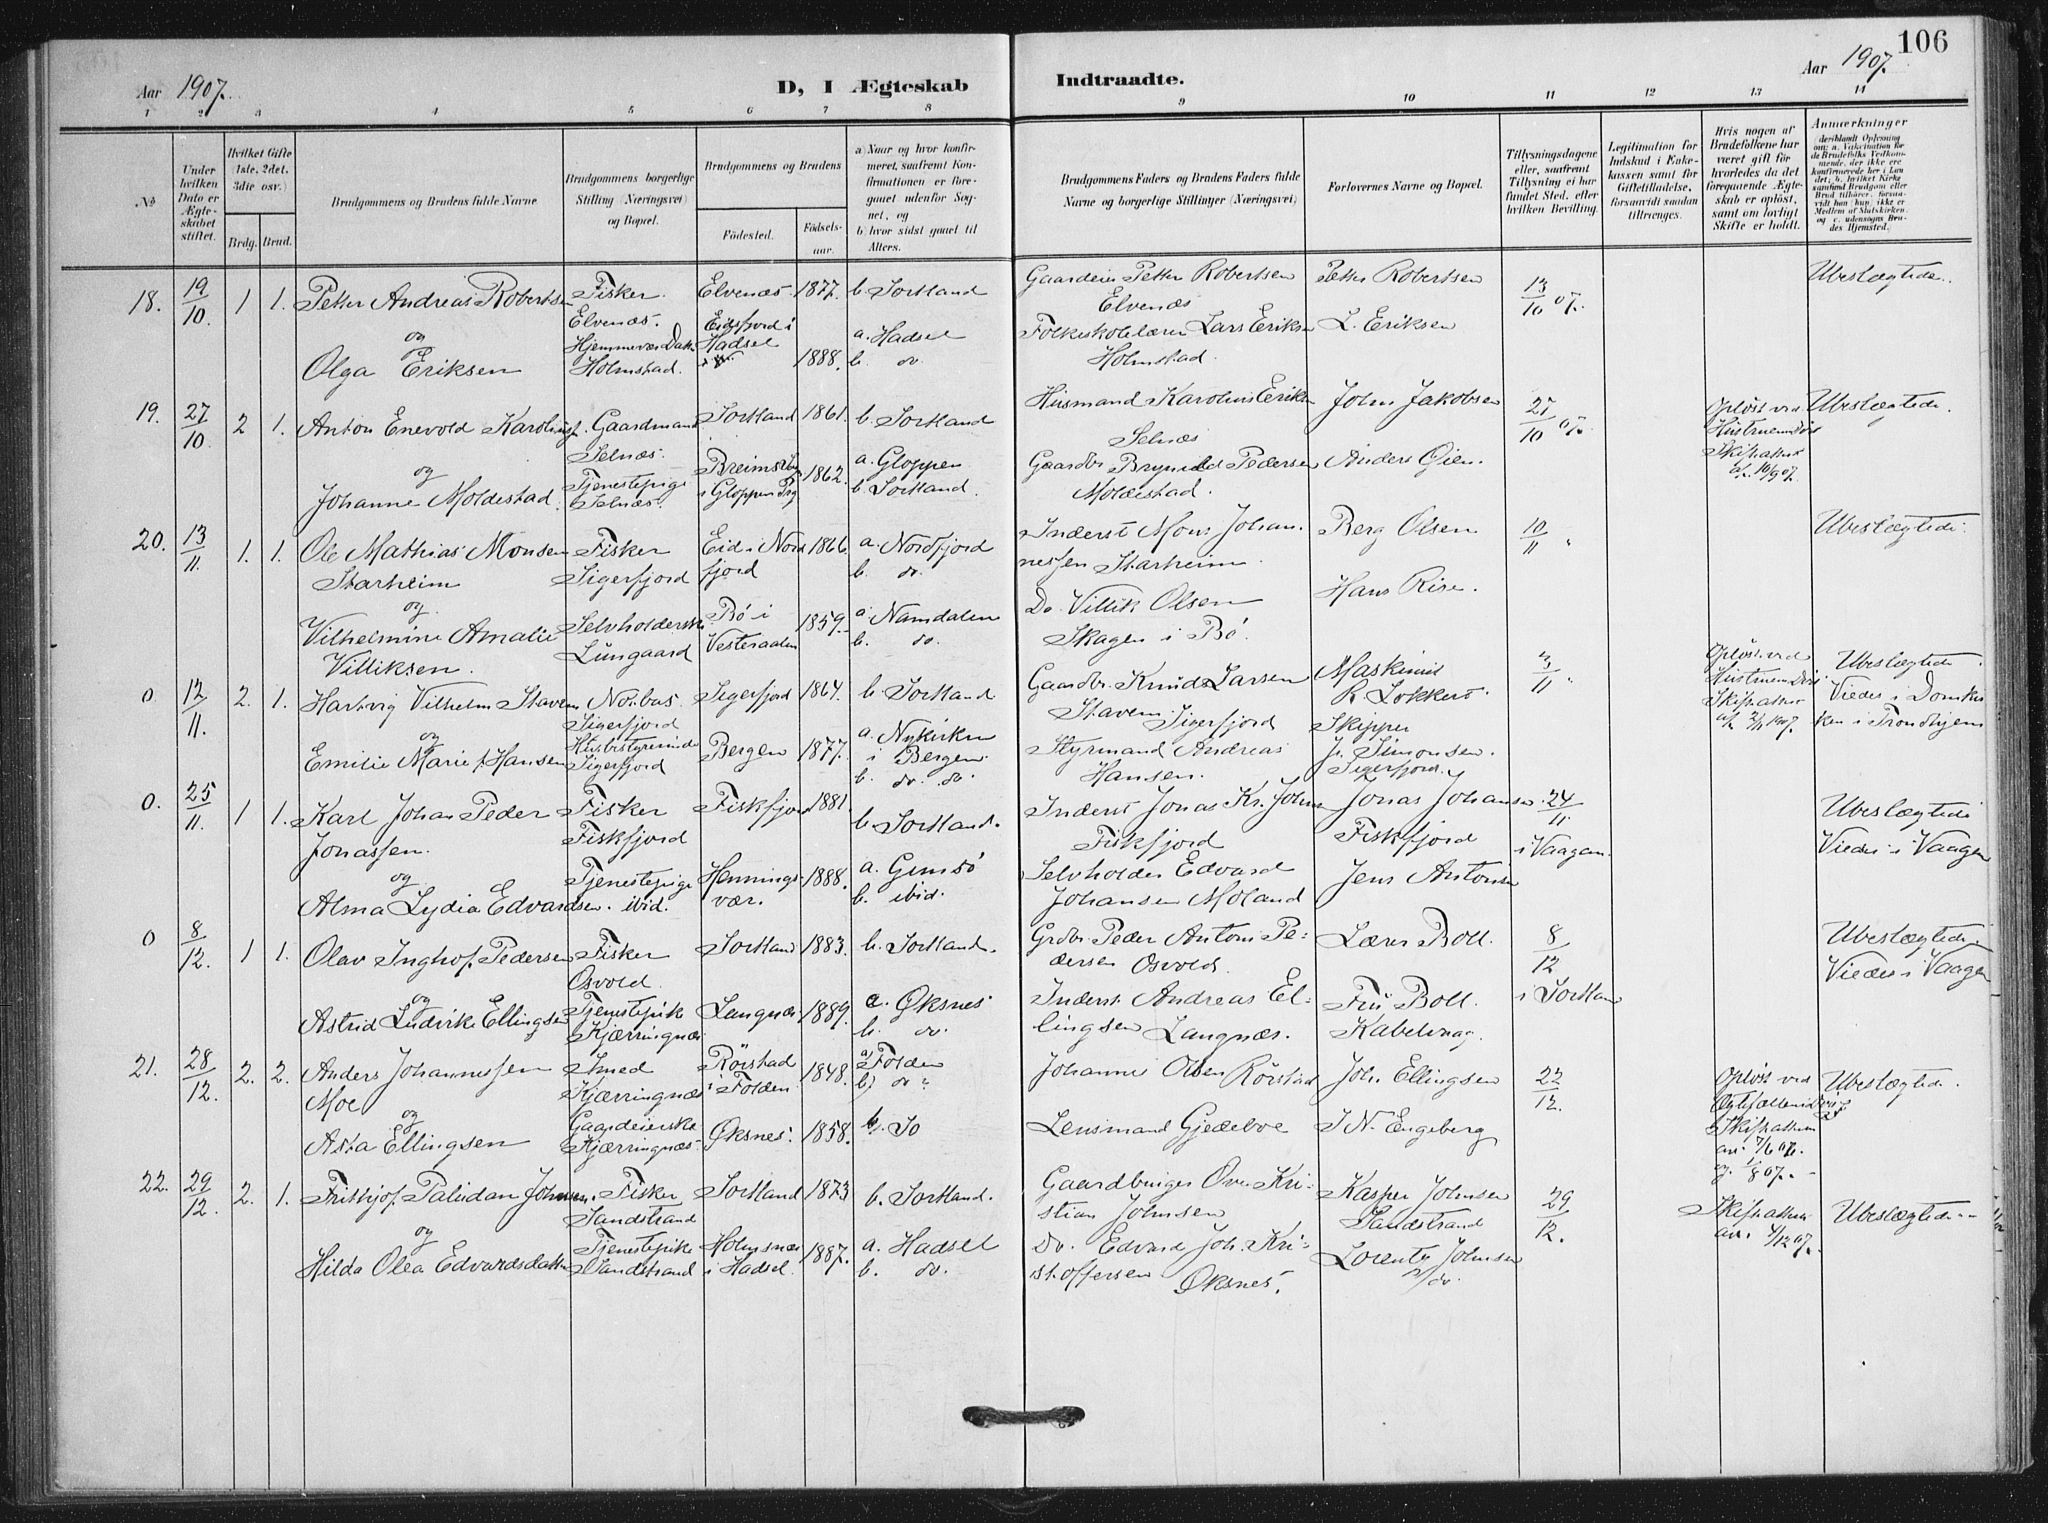 106
Aar 1907.
D, I Ægteskab
Indtraadte.
Aar 1907.
1 2 3 4 5 6 7 8 9 10 11 12 13 14
No
Under hvilken Dato er Ægteskabet stiftet.
Hvilket Gifte (1ste, 2det, 3die osv.)
Brdg. Brud.
Brudgommens og Brudens fulde Navne
Brudgommens borgerlige Stilling (Næringsvei) og Bopæl.
Brudgommens og Brudens
Fødested.
Fødselsaar.
a) Naar og hvor konfirmeret, saafremt Konfirmationen er foregaaet udenfor Sognet, og
b) hvor sidst gaaet til Alters.
Brudgommens Faders og Brudens Faders fulde Navne og borgerlige Stillinger (Næringsvei)
Forlovernes Navne og Bopæl.
Tillysningsdagene eller, saafremt Tillysning ei har fundet Sted, efter hvilken Bevilling.
Legitimation for Indskud i Enkekassen samt for Giftetilladelse, forsaavidt saadan tiltrænges.
Hvis nogen af Brudefolkene har været gift før hvorledes da det foregaaende Ægteskab er opløst, samt om lovligt Skifte er holdt.
Anmærkninger
(deriblandt Oplysning om: a. Vakcination for de Brudefolks Vedkommende, der ikke ere konfirmerede her i Landet, b. hvilket Kirkesamfund Brudgom eller Brud tilhører, forsaavidt han (hun) ikke er Medlem af Statskirken, og c. udensogns Brudes Hjemsted.)
18. 19/10 1 1. Petter Andreas Robertsen Fisker Elvenæs. Elvenæs 1877. b. Sortland Gaardeier Petter Robertsen Elvenæs Petter Robertsen 13/10 07. Ubeslægtede.
og
Olga Eriksen Hjemmevær. Datter Holmstad. Eidsfjord i Hadsel 1888. a. Hadsel b. do. Folkeskolelærer Lars Eriksen Holmstad. L. Eriksen
19. 27/10 2 1. Anton Enevold Karolius. Gaardmand Selnæs. Sortland 1861. b. Sortland Husmand Karolius Eriksen Selnæs John Jakobsen 27/10 07. Opløst ved Hustruens Død Skifteattest 10/9 07. Ubeslægtede.
og
Johanne Moldestad Tjenestepige Selnæs. i Gloppen Prg 1862. a. Gloppen b. Sortland. Gaardbr. Pedersen Moldestad. Anders Øien
20. 13/11. 1. 1. Ole Mathias Monsen Starheim Fisker Sigerfjord Eid i Nordfjord 1866. a. Nordfjord b. do. Inderst Mons Johannessen Starheim. Berg Olsen 10/11 " Ubeslægtede.
og
Vilhelmine Amalie Villiksen. Selvholderske Lungaard Bø i Vesteraalen 1859. a. Namdalen b. do. Do. Villik Olsen Skagen i Bø. Hans Rise.
0. 12/11. 2. 1. Hartvig Vilhelm Stavem Sigerfjord Sigerfjord 1864. b. Sortland Gaardbr. Knud Larsen Stavem Sigerfjord Maskinist R. Lokkert. Opløst ved Hustruens Død Skifteattest 1907. Ubeslægtede. Viedes i Domkirken i Trondhjem
og
Emilie Marie f. Hansen Husbestyrerinde Sigerfjord Bergen 1877. a. Nykirken i Bergen. b. do. do. Styrmand Andreas Hansen. Skipper J. Simonsen. Sigerfjord.
0. 25/11. 1 1. Karl Johan Peder Jonassen. Fisker Fiskfjord Fiskfjord 1881. b. Sortland. Inderst Jonas Kr. Johns. Fiskfjord Jonas Johansen Fiskfjord 24/11. i Vaagan. Ubeslægtede Viedes i Vaagen
og
Alma Lydia Edvardsen. Tjenestepige ibid. Henningsvær. 1888. a. Gimsø b. ibid. Selvholder Edvard Johansen Moland Jens Antonsen
0 8/12. 1 1. Olav Inghof. Pedersen Fisker Osvold. Sortland 1883. b. Sortland. Grdbr. Peder Anton Pedersen Osvold. Lærer Boll. 8/12 i Sortland Ubeslægtede. Viedes i Vaagen
og
Astrid Ludvike Ellingsen Tjenestepike Kjærringnæs. Langnæs. 1889. a. Øksnes b. do. Inderst Andreas Ellingsen Langnæs. Fru Boll Kabelvaag.
21. 28/12. 2. 2. Anders Johannessen Moe Smed Kjærringnæs Rørstad i Folden 1848. a) Folden b) do " Johannes Olsen Rørstad Joh. Ellingsen 22/12. Opløst ved Ægtefællernes Død Skifteattester av. 7/6 07. og 1/8 07. Ubeslægtede.
og
Asta Ellingsen Gaardeierske Kjærringnæs. Øksnes. 1858. b. So Lensmand Gjedeboe I. N. Engeberg
22. 29/12. 2. 1. Frithjof Paludan Johnsen. Fisker Sandstrand Sortland 1873 b. Sortland. Gaardbruger Ove Kristian Johnsen Kasper Johnsen Sandstrand 29/12. Skifteattest av. 4/12 07. Ubeslægtede
og
Hilda Olea Edvardsdatter Tjenestepike Sandstrand Holmsnæs i Hadsel. 1887. a. Hadsel b. do. Do. Edvard Joh. Kristoffersen Øksnes. Lorents Johnsen do.